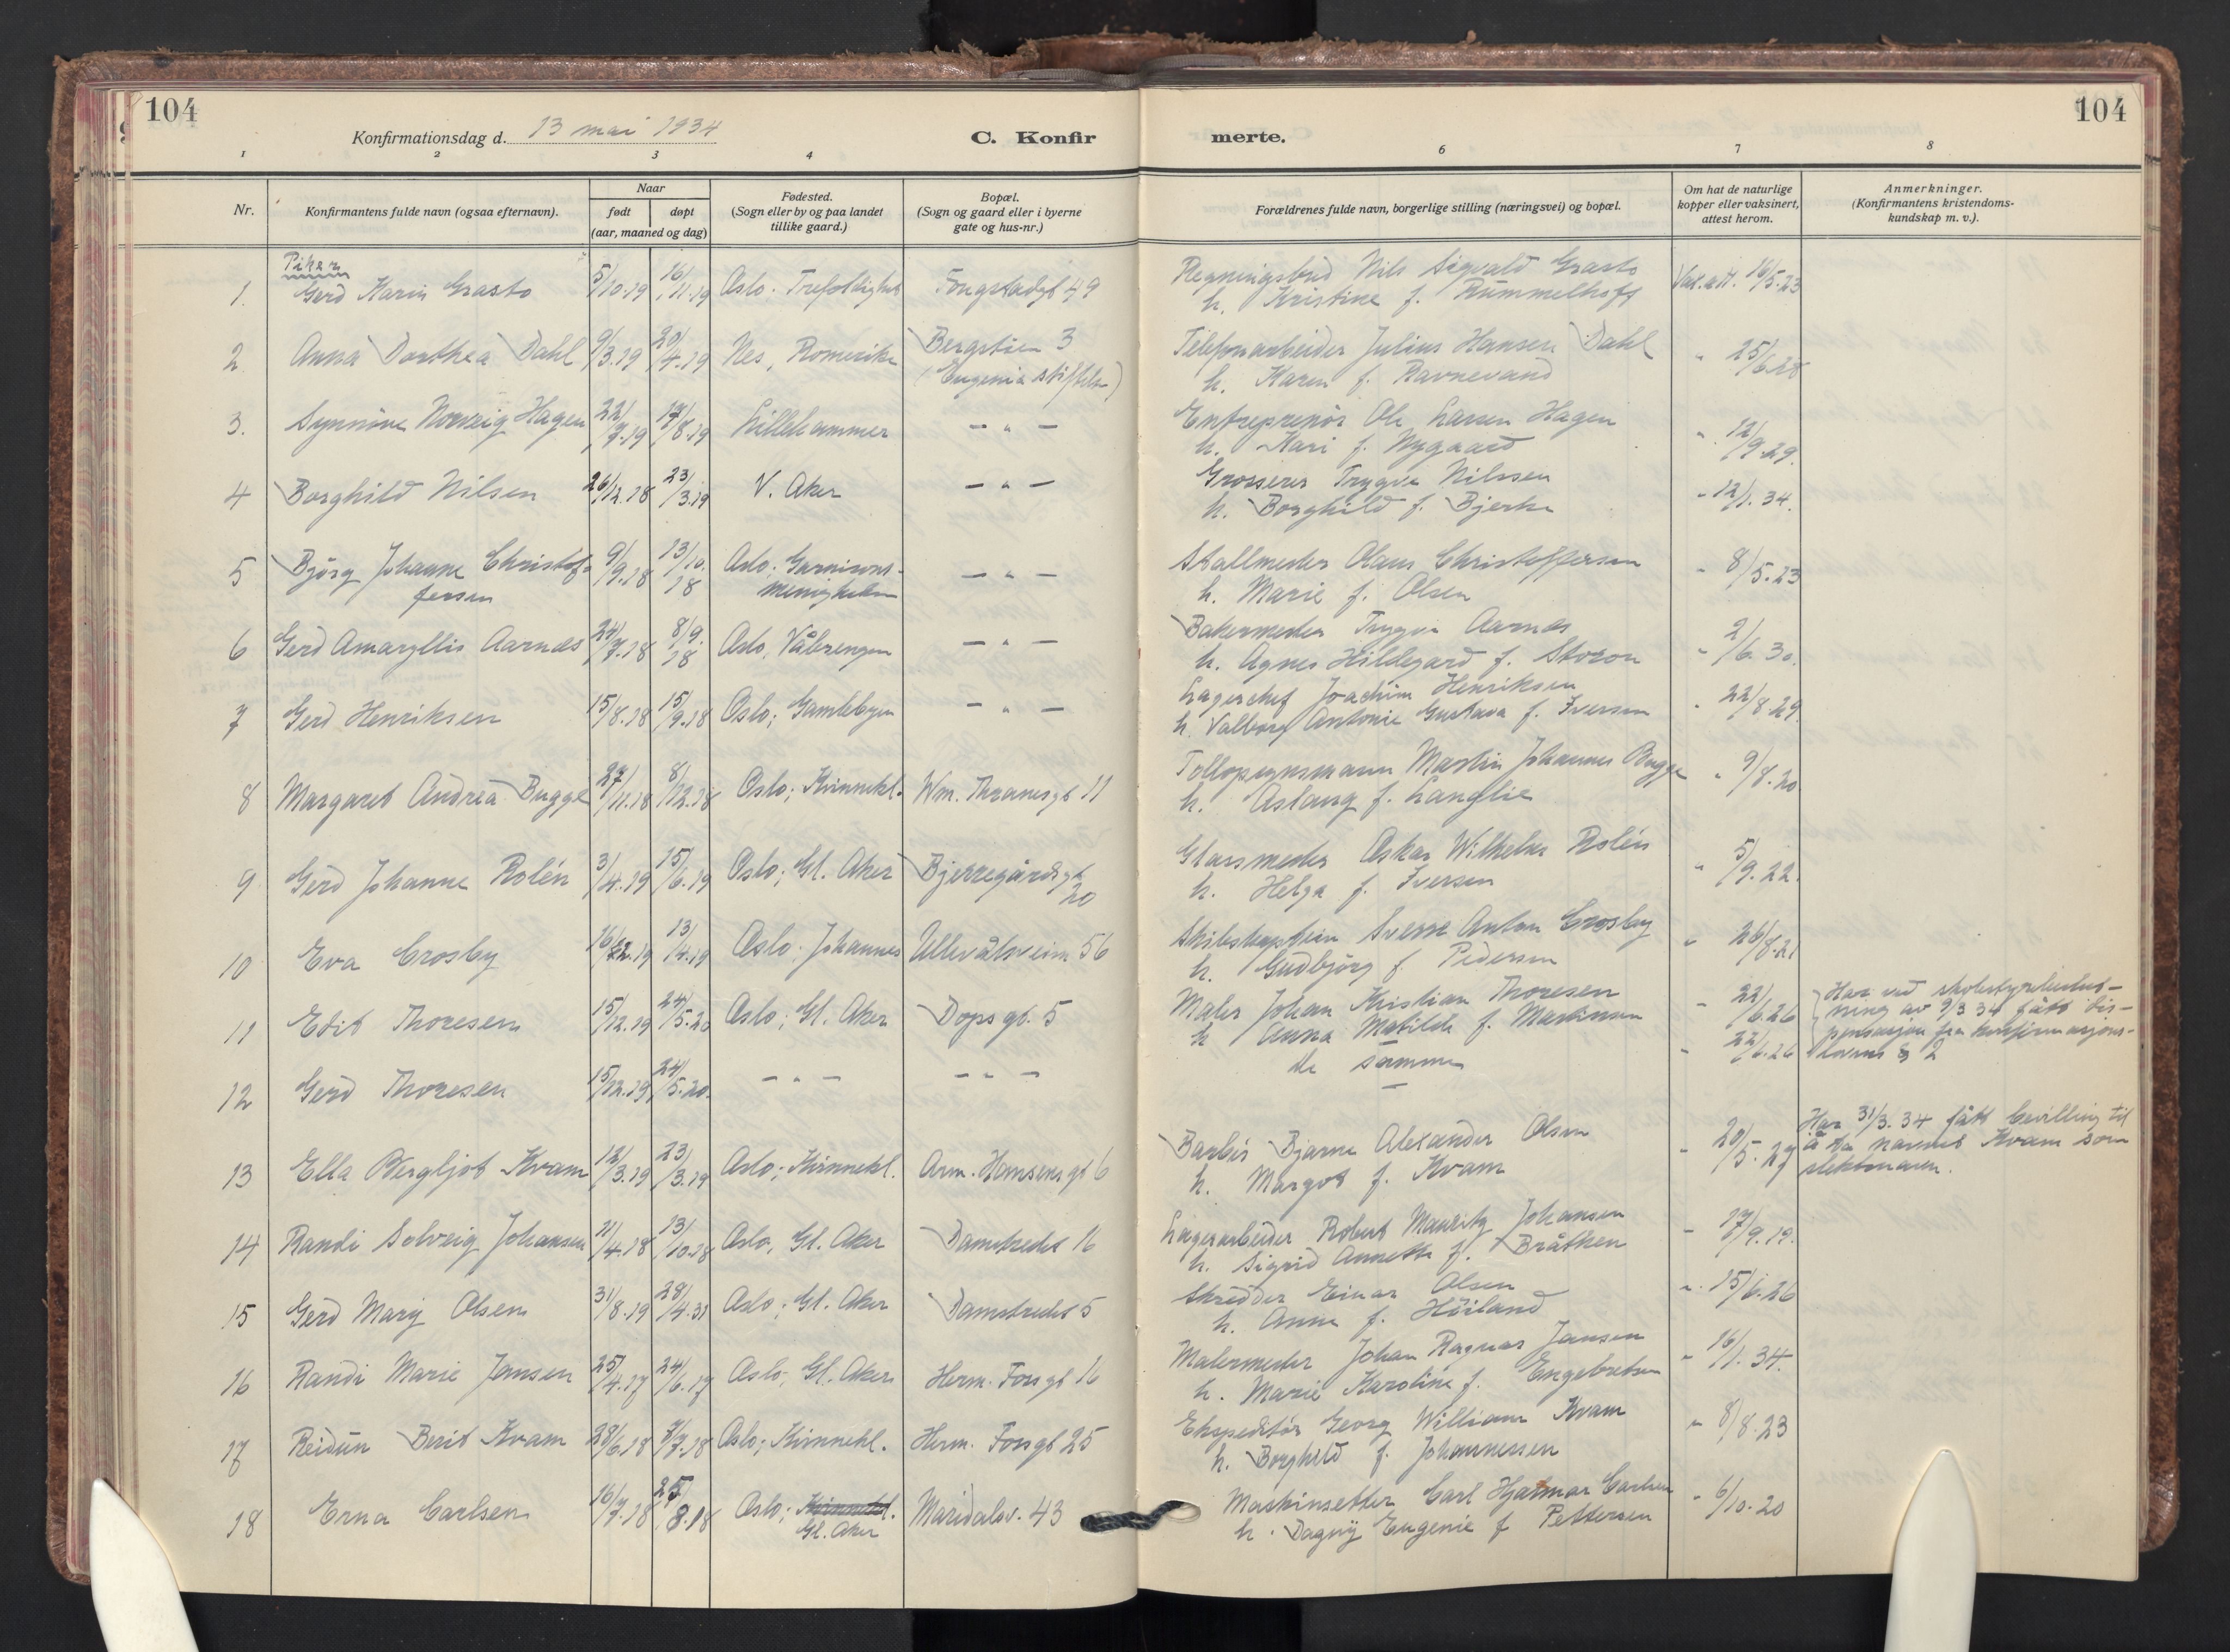 104
104
Konfirmationsdag d. 13 mai 1934
C. Konfir
merte.
1 2 3 4 6 7 8
Nr.
Konfirmantens fulde navn (ogsaa efternavn).
Naar
født
døpt
(aar, maaned og dag)
Fødested.
(Sogn eller by og paa landet
tillike gaard.)
Bopæl.
(Sogn og gaard eller i byerne
gate og hus-nr.)
Forældrenes fulde navn, borgerlige stilling (næringsvei) og bopæl.
Om hat de naturlige
kopper eller vaksinert,
attest herom.
Anmerkninger.
(Konfirmantens kristendoms-
kundskap m. v.).
Piker
1. Gerd Karin Grasto 5/10.19 16/11.19 Oslo. Trefoldighet 49
Regningsbud Nils Sigvald Grasto
h. Kristine f. Rummelhoff
Vak.att. 16/5.23
2 Anna Dorthea Dahl 9/3.19 20/4.19 Nes, Romerike Bergstien 3
(Eugenia stiftelse)
Telefonarbeider Julius Hansen Dahl
h. Karen f. Ravnevand
" 25/6.28
3. Synnöve Norveig Hagen 22/7.19 17/8.19 Lillehammer — " —
Entreprenör Ole Larsen Hagen
h. Kari f. Nygaard
" 12/9.29.
4 Borghild Nilsen 26/12.18 23/3.19 V. Aker — " —
Grosserer Trygve Nilssen
h. Borghild f. Bjerke
" 12/1.34.
5 Björg Johanne Christof-
fersen 9/9.18 13/10.18 Oslo. Garnisons-
menigheten — " —
Stallmester Olaus Christoffersen
h. Marie f. Olsen
" 8/5.23
6 Gerd Amaryllis Aarnæs 24/7.18 8/9.18 Oslo, Vålerengen — " —
Bakermester Trygve Aarnæs
h. Agnes Hildegard f. Storon
" 2/6.30.
7 Gerd Henriksen 15/8.18 15/9.18 Oslo; Gamlebyen — " —
Lagerchef Joachim Henriksen
h. Valborg Antonie Gustava f. Iversen
" 22/8.29.
8 Margaret Andrea Bugge 27/11.18 8/12.18 Oslo; Kvinnekl. Wm. Thranesgt 11
Tollopsynsmann Martin Johannes Bugge
h. Aslaug f. Langlie
" 9/8.20
9 Gerd Johanne Rolén 3/4.19 15/6.19 Oslo; Gl. Aker Bjerregårdsgt
20
Glassmester Oskar Wilhelm Rolén
h. Helga f. Iversen
" 5/9.22.
10 Eva Crosby 16/2.19 13/4.19 Oslo. Johannes Ullevålsveien 56
Skibskaptein Sverre Anton Crosby
h. Gudbjörg f. Pedersen
" 26/8.21
11 Edit Thoresen 15/12.19 24/5.20 Oslo; Gl. Aker Dopsgt. 5
Maler Johan Kristian Thoresen
h Anna Matilde f. Martinsen
" 22/6.26
Har ved skolestyrebeslut-
ning av 9/3 34 fått dis-
pensasjon fra konfirmasjons-
lovens § 2
12 Gerd Thoresen 15/12.19 24/5.20. — " — — " —
de samme
" 22/6.26
13 Ella Bergljot Kvam 12/3.19 23/3.19 Oslo; Kvinnekl. Arm. Hansens gt 6
Barbér Bjarne Alexander Olsen
h. Margot f. Kvam
" 20/5.27
Har 31/3.34 fått bevilling til
å ta navnet Kvam som
slektsnavn.
14 Randi Solveig Johansen 11/4.18 13/10.18 Oslo, Gl. Aker Damstredet 16
Lagerarbeider Robert Mauritz Johansen
h. Sigrid Annette f. Bråthen
" 17/9.19.
15 Gerd Mary Olsen 31/8.19 28/4.31 Oslo; Gl. Aker Damstredet 5
Skredder Einar Olsen
h. Anna f. Höiland
" 15/6.26
16 Randi Marie Jansen 25/4.17 24/6.17 Oslo; Gl. Aker Herm. Fossgt 16
Malermester Johan Ragnar Jansen
h. Marie Karoline f. Engebretsen
" 16/1.34.
17 Reidun Berit Kvam 28/6.18 Oslo; Kvinnekl. Herm. Fossgt 25
Ekspeditör Georg William Kvam
h. Borghild f. Johannessen
" 8/8.23
18 Erna Carlsen 16/7.18 25/8.18 Oslo; Kvinnekl.
Gl. Aker Maridalsv. 43
Maskinsetter Carl Hjalmar Carlsen
h. Dagny Eugenie f Pettersen
" 6/10.20